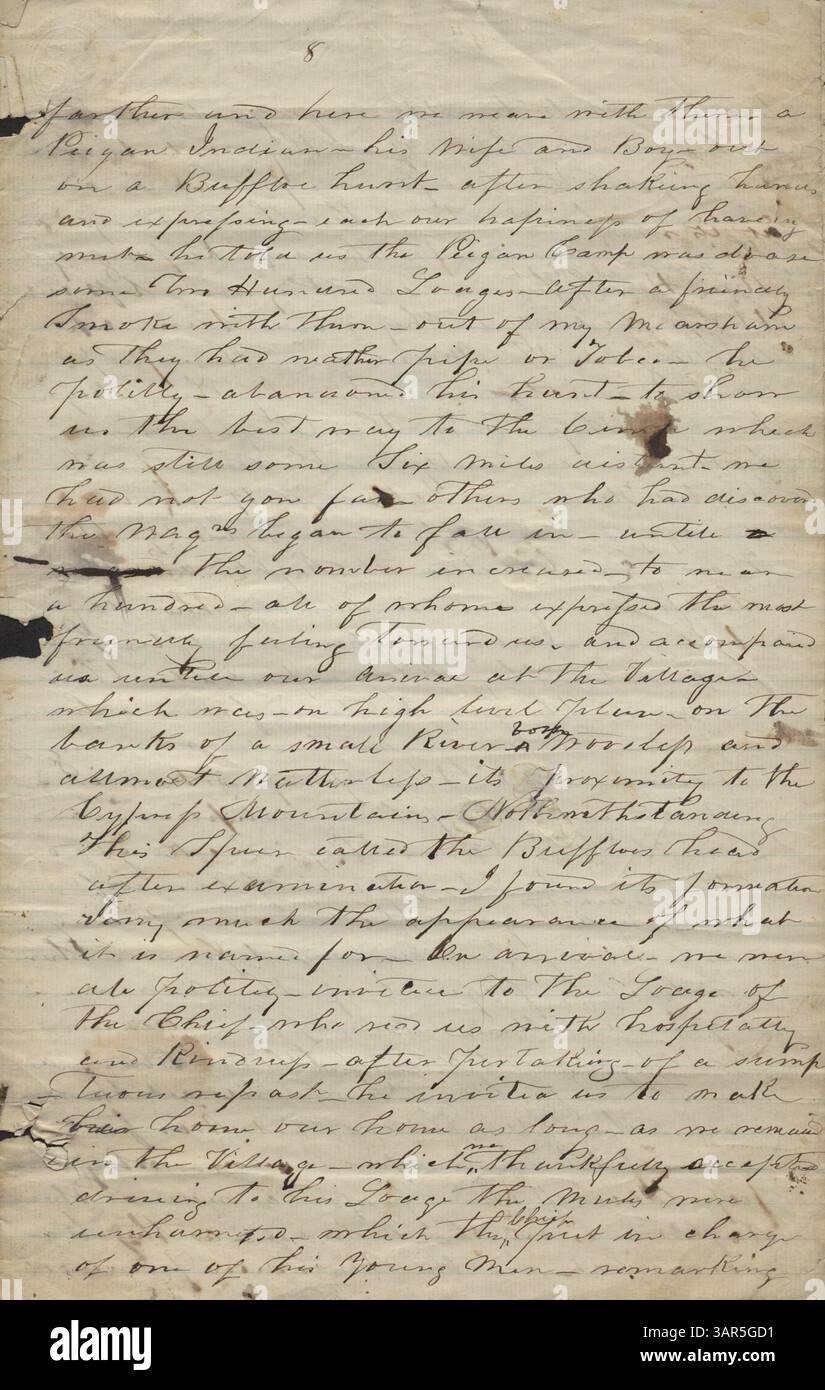 8
farther and here we meare with them a
Peigan Indian – his Wife and Boy – out
on a Buffloe hunt – after shaking hands
and expressing – each our hapiness of having
met – he told us the Peigan Camp was close
some Two Hundred Lodges – after a friendly
Smoke with them – out of my Mearsham
as they had neather pipe or Tobco – he
politly – abandoned his hunt – to show
us the best way to the Camp which
was still some Six miles distant – we
had not gon far – others who had discoverd
the Wagns began to fall in – untile
the nomber increased – to near
a hundred – all of whome expressed the most
friendly feeling toward us – and accompaid
us untile our arival at the Village –
which was – on high level plain – on the
banks of a small River both Woodless and
allmost Watterless – its proximity to the
Cypress Mountains – Nothwithstanding
This Spur called the Buffloes head
after examination – I found its formation
Very much the appearance of what
it is named for – On arrival – we were
all politly – invited to the Lodge of
the Chief – who recd us with hospetally
and Kindness – after pertaking – of a sump
– tuous repast – he invited us to make
his home our home as long – as we remaind
in the Village – which we thankfully accepted
driving to his Lodge the Mules were
unharnesd – which the Chief put in charge
of one of his Young Men – remarking
alamy
Image ID: 3AR5GD1
www.alamy.com